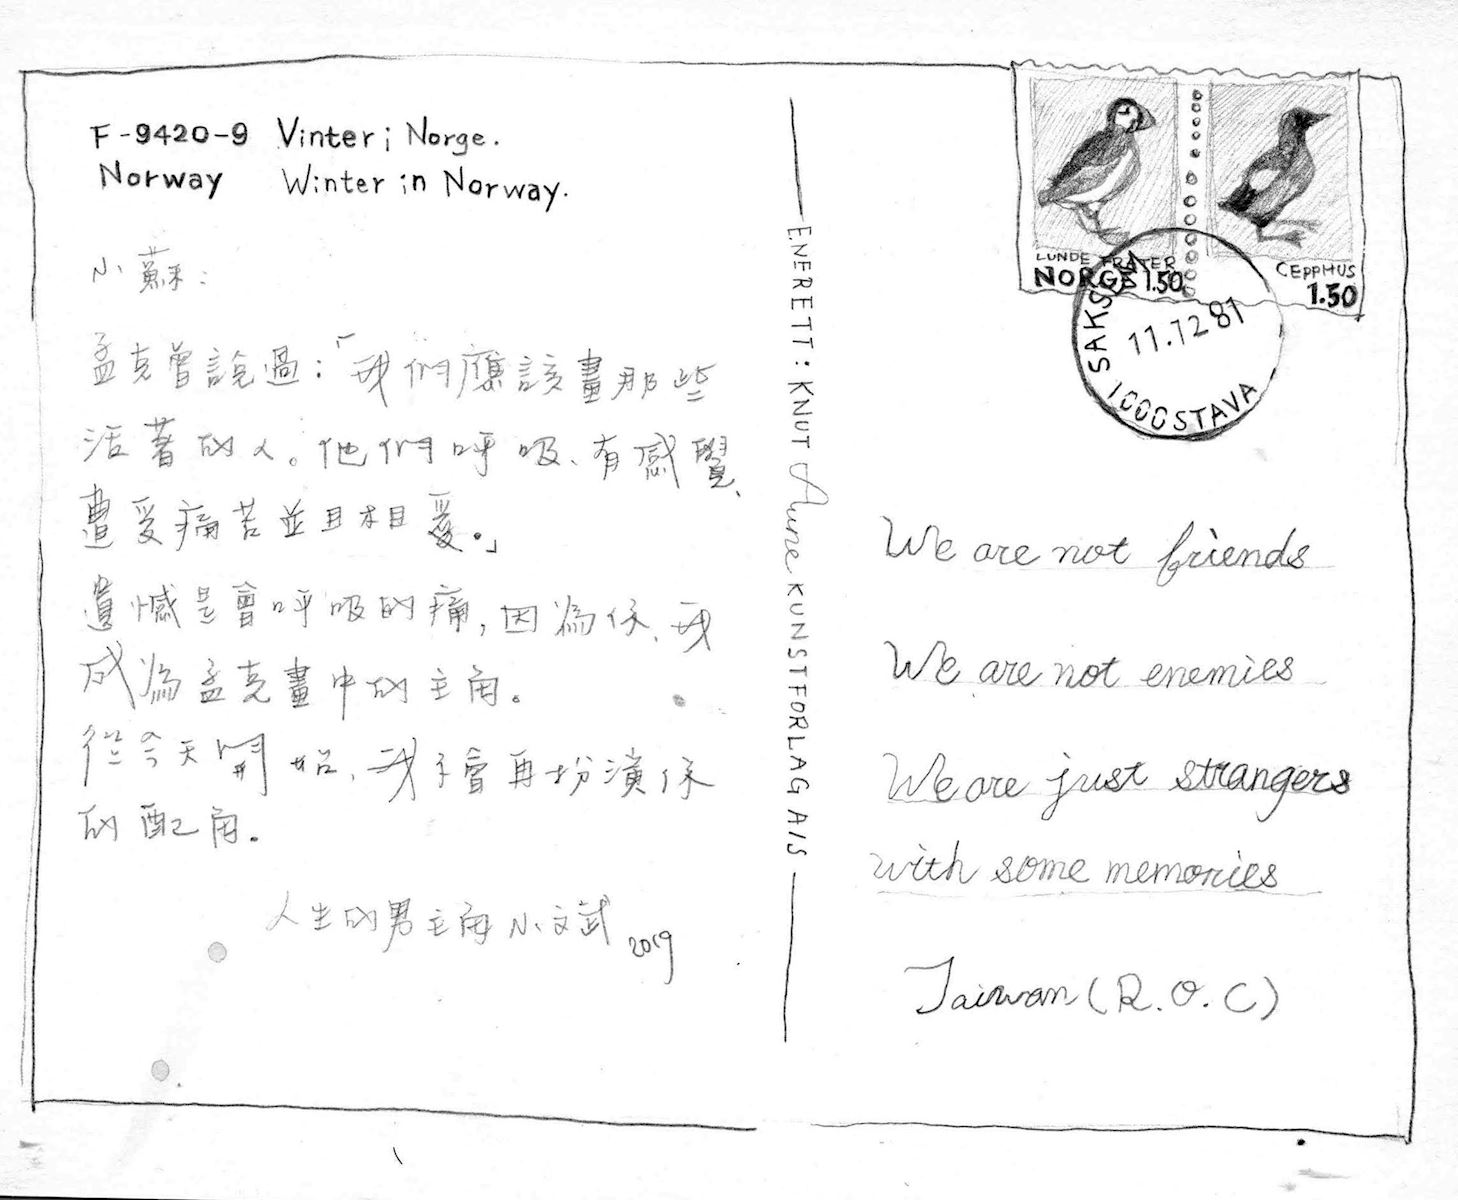 F-9420-9 Vinter i Norge.
Norway Winter in Norway.
小蘇：
孟克曾說過：「我們應該畫那些
活著的人。他們呼吸、有感覺、
遭受痛苦並且相愛。」
遺憾是會呼吸的痛，因為你、我
成為孟克畫中的主角。
從今天開始、我不會再扮演你
的配角。
人生的男主角小文武 2019
ENERETT: KNUT Aune KUNSTFORLAG A/S
LUNDE FRATER
NORGE 1.50
CEPPHUS
1.50
11.12 81
1000 STAVA
We are not friends
We are not enemies
We are just strangers
with some memories
Taiwan (R.O.C)